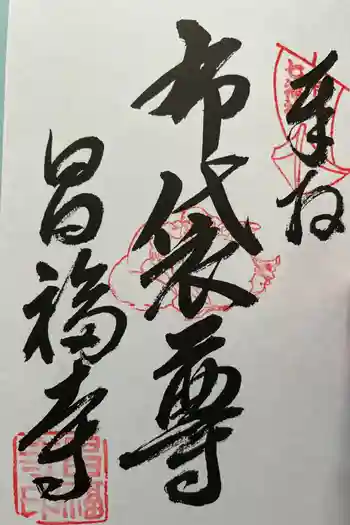 奉拝
布袋尊
昌福寺